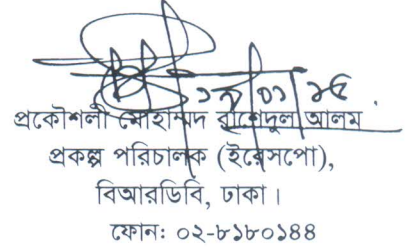 ১৯/০১/১৫
প্রকৌশলী মোহাম্মদ রাশেদুল আলম
প্রকল্প পরিচালক (ইরেসপো),
বিআরডিবি, ঢাকা।
ফোন: ০২-৮১৮০১৪৪